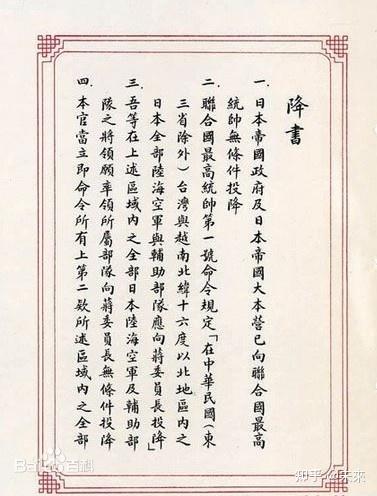 降書
一.日本帝國政府及日本帝國大本營已向聯合國最高
統帥無條件投降
二.聯合國最高統帥第一號命令規定「在中華民國(東
三省除外)台灣與越南北緯十六度以北地區內之
日本全部陸海空軍與輔助部隊應向蔣委員長投降」
三.吾等在上述區域內之全部日本陸海空軍及輔助部
隊之將領願率領所屬部隊向蔣委員長無條件投降
四.本官當立即命令所有上第二款所述區域內之全部
Bai百科
知乎 @未來